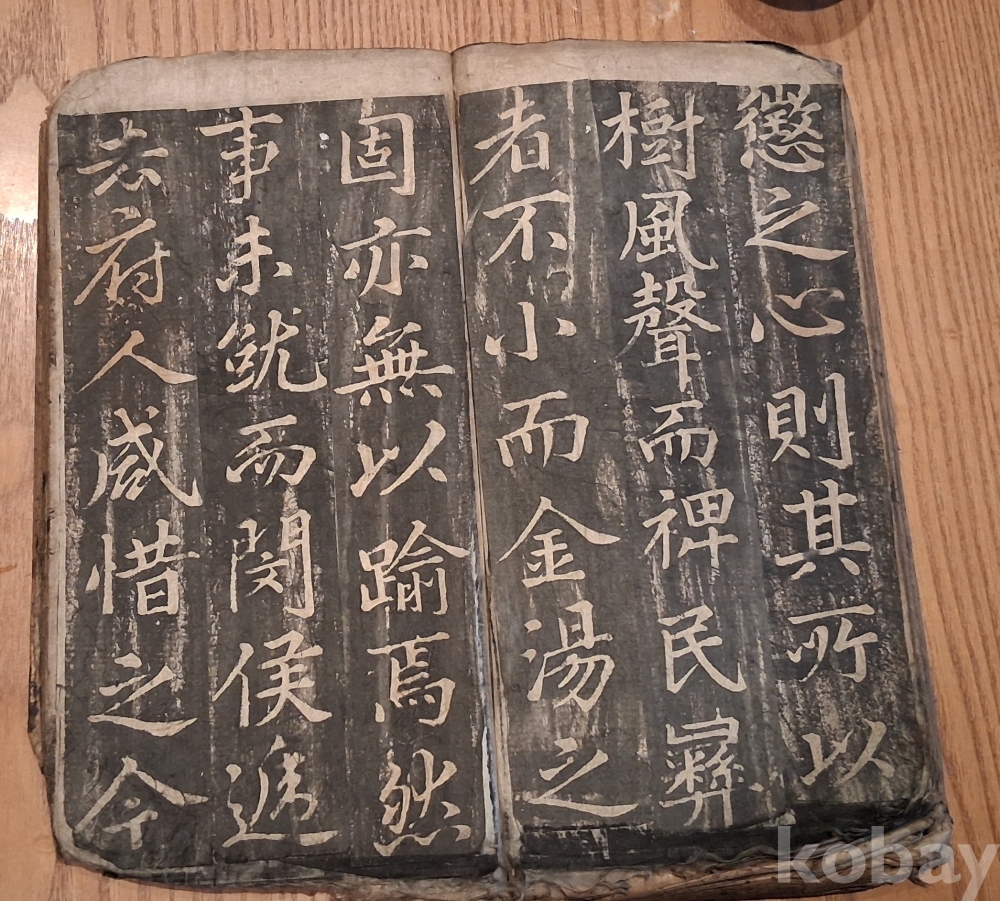 懲之心則其所以
樹風聲而裨民彛
者不小而金湯之
固亦無以踰焉然
事未就而閔侯遞
去府人咸惜之今
kobay